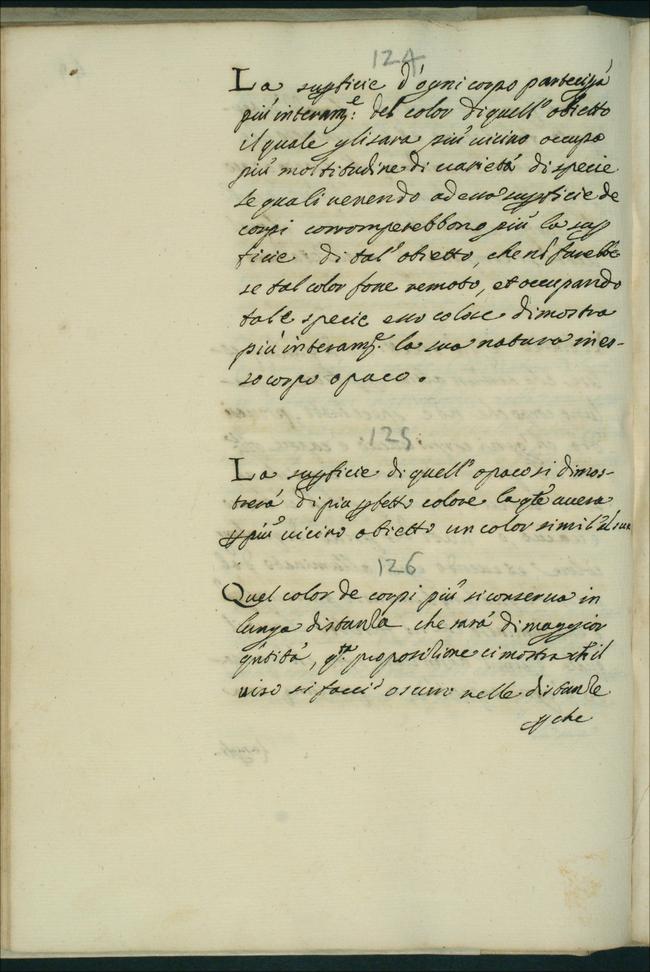 124
La supficie d'ogni corpo partecipa
più interam:e del color di quell'obietto
il quale gli sara più vicino occupa
più moltitudine di varietà di specie
le quali venendo ad essa supficie de
corpi corromperebbono più la sup
ficie di tal'obietto, che nō farebbe
se tal color fosse remoto, et occupando
tale specie esso colore dimostra
più interam:e la sua natura in es-
so corpo opaco.
125
La supficie di quell'opaco si dimos-
trerà di più pfetto colore la qle avera
p più vicino obietto un color simil'al suo
126
Quel color de corpi più si conserva in
lunga distanza che sarà di maggior
qntità, qta proposizione ci mostra ch'il
viso si facci oscuro nelle distanze
pche